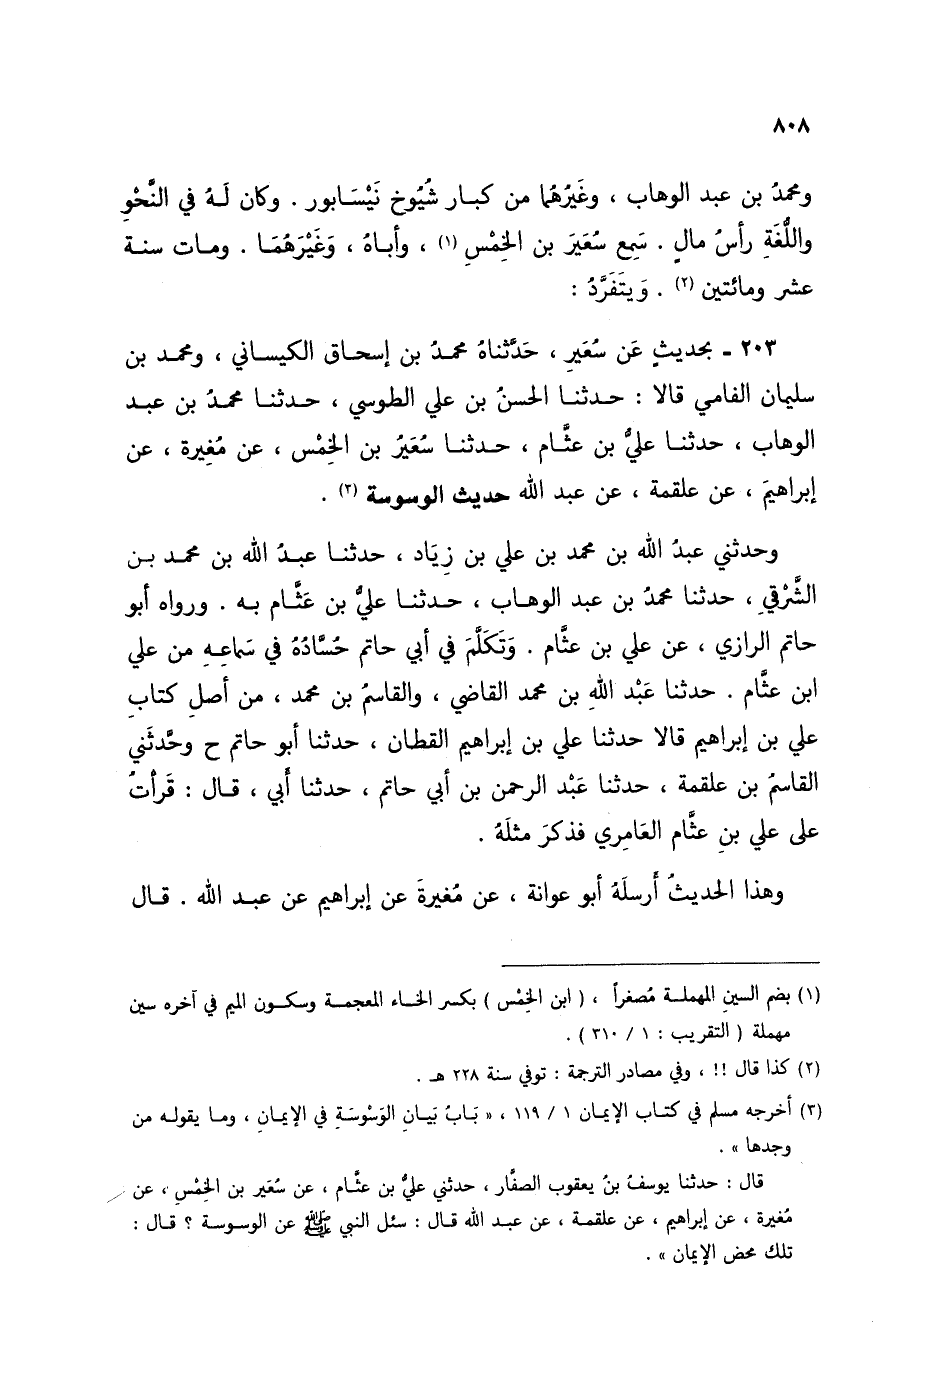 ٨٠٨
ومحمدُ بن عبد الوهاب ، وغَيْرُهُما من كبـار شُيُوخ نَيْسَابور . وكان لَـهُ في النَّحْوِ
واللُّغَةِ رأسُ مالٍ . سَمِع سُعَيَرَ بن الخِمْسِ (١) ، وأباهُ ، وَغَيْرَهُمَـا . ومـات سنـة
عشر ومائتين (٢) . وَيتَفَرَّدُ :
٢٠٣ ـ بحديثٍ عَن سُعَيرٍ ، حَدَّثناهُ محمدُ بن إسحاق الكيسـاني ، ومحمـد بن
سليمان الفامي قالا : حـدثنـا الحسنُ بن علي الطوسي ، حـدثنـا محمدُ بن عبـد
الوهاب ، حدثنـا عليُّ بن عثَّـام ، حـدثنـا سُعَيرُ بن الخِمْس ، عن مُغِيرة ، عن
إبراهيمَ ، عن علقمة ، عن عبد الله حديث الوسوسة (٣) .
وحدثني عبدُ الله بن محمد بن علي بن زِيَاد ، حدثنـا عبـدُ الله بن محمـد بـن
الشَّرْقيِ ، حدثنا محمدُ بن عبد الوهـاب ، حـدثنـا عليُّ بن عَثَّـام بـه . ورواه أبو
حاتم الرازي ، عن علي بن عثَّام . وَتَكَلَّمَ في أبي حاتم حُسَّادُهُ في سَماعِـهِ من علي
ابن عثَّام . حدثنا عَبْد اللهِ بن محمد القاضي ، والقاسمُ بن محمد ، من أصلِ كتابِ
علي بن إبراهيم قالا حدثنا علي بن إبراهيم القطان ، حدثنا أبو حاتم ح وحَّدثَني
القاسمُ بن علقمة ، حدثنا عَبْد الرحمن بن أبي حاتم ، حدثنا أَبي ، قـال : قَرأْتُ
على علي بنِ عثَّام العَامِري فذكرَ مثلَهُ .
وهذا الحديثُ أَرسلَهُ أبو عوانة ، عن مُغيرةَ عن إبراهيم عن عبـد الله . قـال
(١) بضم السينِ المهملـة مُصغراً ، ( ابن الخِمْس ) بكسر الخـاء المعجمـة وسكـون الميم في آخره سين
مهملة ( التقريب : ١ / ٣١٠ ) .
(٢) كذا قال !! ، وفي مصادر الترجمة : توفي سنة ٢٢٨ هـ .
(٣) أخرجه مسلم في كتـاب الإيمان ١ / ١١٩ ، « بَـابُ بَيـانِ الوَسْوسَةِ في الإيمانِ ، ومـا يقولـه من
وجدها » .
قال : حدثنا يوسفُ بنُ يعقوب الصفَّار ، حدثني عليُّ بن عثَّـام ، عن سُعَير بن الخِمْسِ ، عن
مُغيرة ، عن إبراهيم ، عن علقمـة ، عن عبـد الله قـال : سئل النبي ﷺ عن الوسوسة ؟ قـال :
تلك محض الإيمان » .